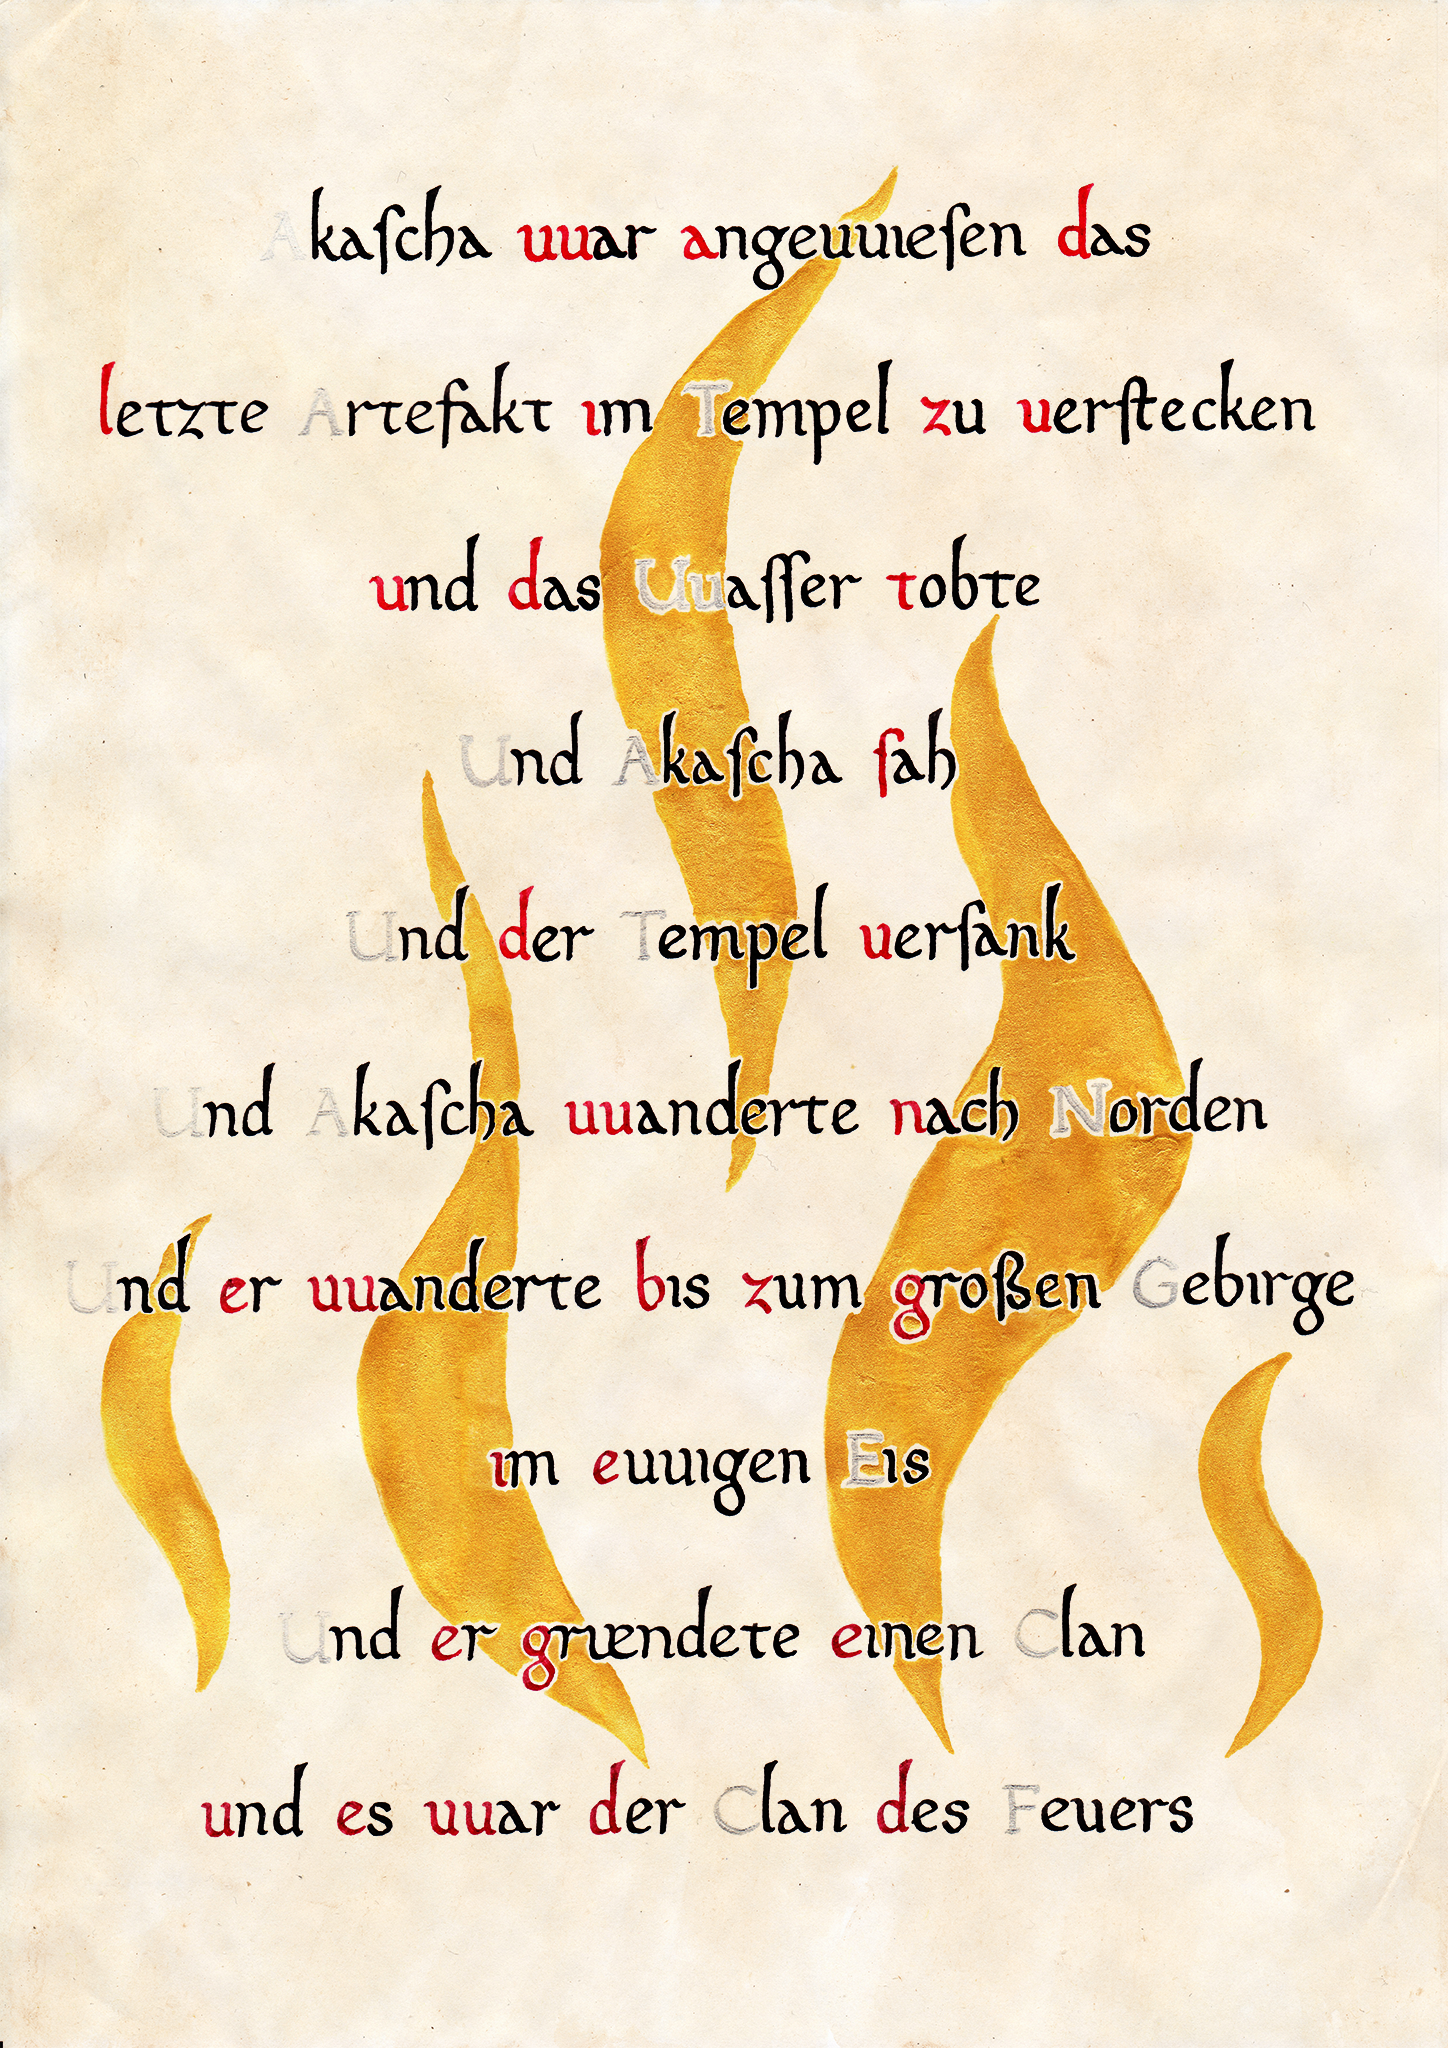 Akaſcha uuar angeuuıeſen das
letzte Artefakt ım Tempel zu uerſtecken
und das Uuaſſer tobte
Und Akaſcha ſah
Und der Tempel uerſank
Und Akaſcha uuanderte nach Norden
Und er uuanderte bıs zum großen Gebırge
ım euuıgen Eıs
Und er grıændete eınen Clan
und es uuar der Clan des Feuers